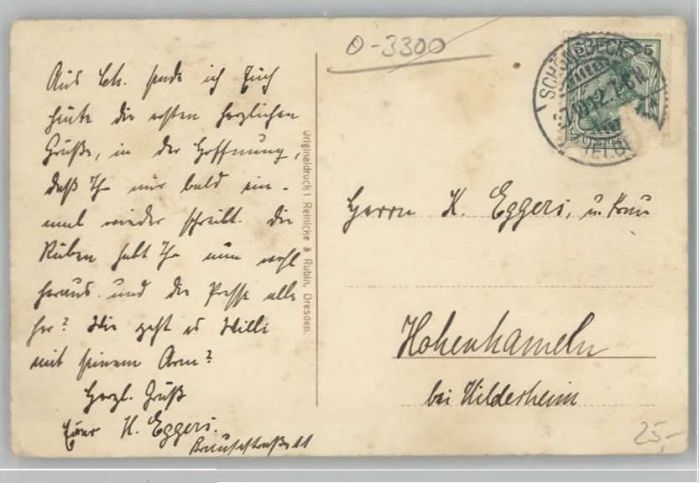 O-3300
SCHÖNEBECK
(ELBE)
5 5
Aus Sch. sende ich Euch
heute die ersten herzlichen
Grüße, in der Hoffnung,
daß Ihr mir bald ein-
mal wieder schreibt. Die
Rüben habt Ihr nun wohl
heraus und die
her? Wie geht es Willi
mit seinem Arm?
Herzl. Grüß
Euer H. Eggers.
Originaldruck! Reinicke & Rubin, Dresden.
Herrn H. Eggers, u. Frau
Hohenhameln
bei Hildesheim
25,-